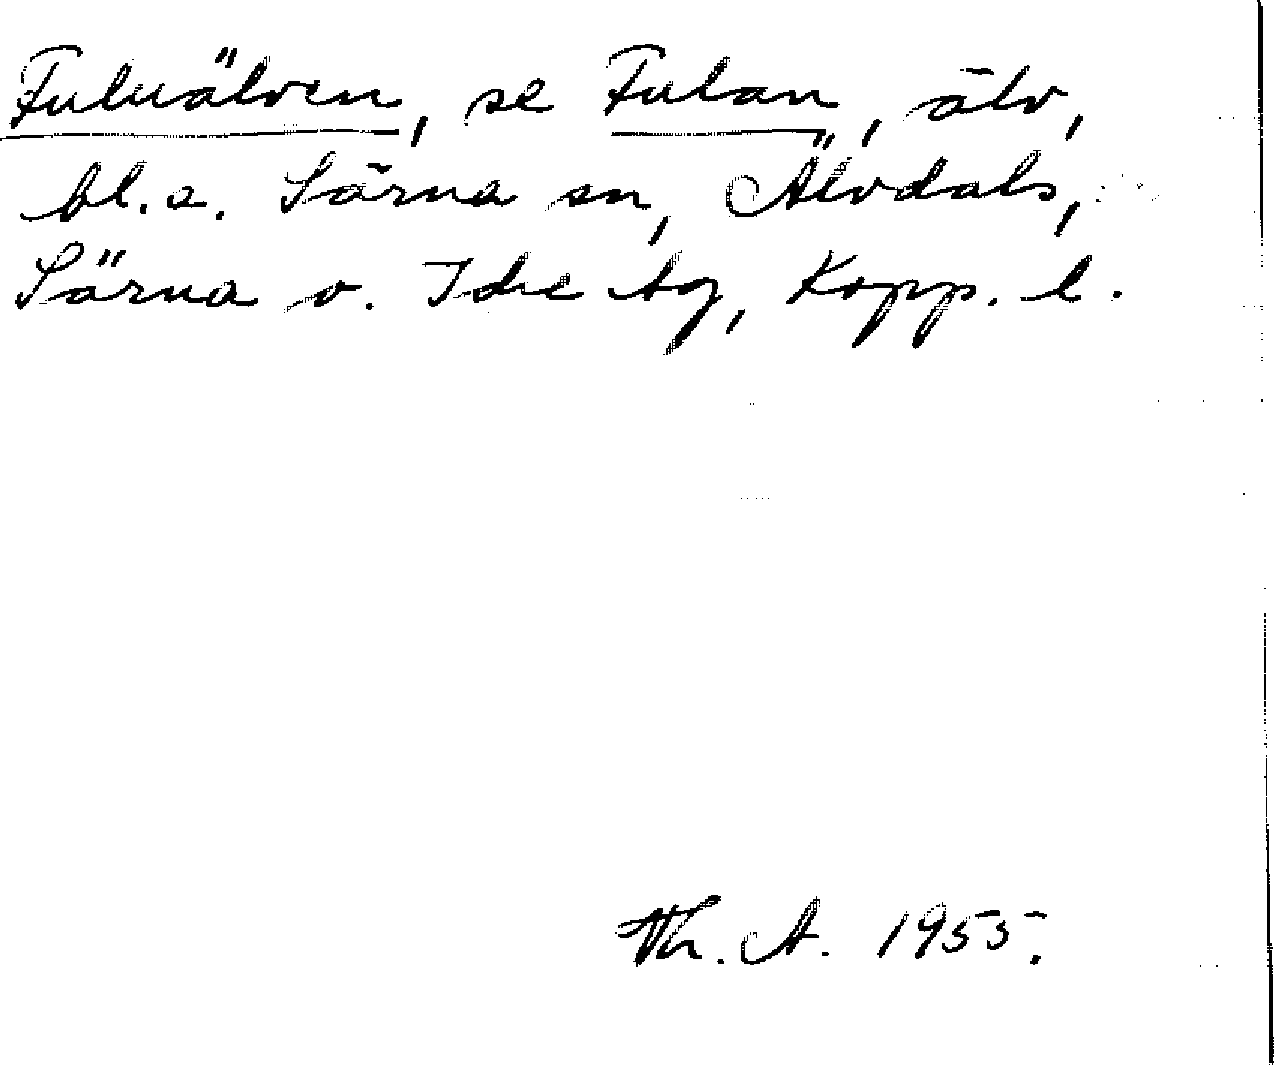 Fuluälven, se Fulan, älv,
bl.a. Särna sn, Älvdals,
Särna o. Idre tg, Kopp. l.
Th. A. 1955.